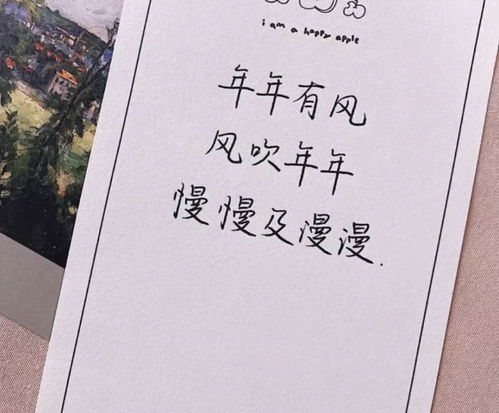 i am a happy apple
年年有风
风吹年年
慢慢及漫漫.